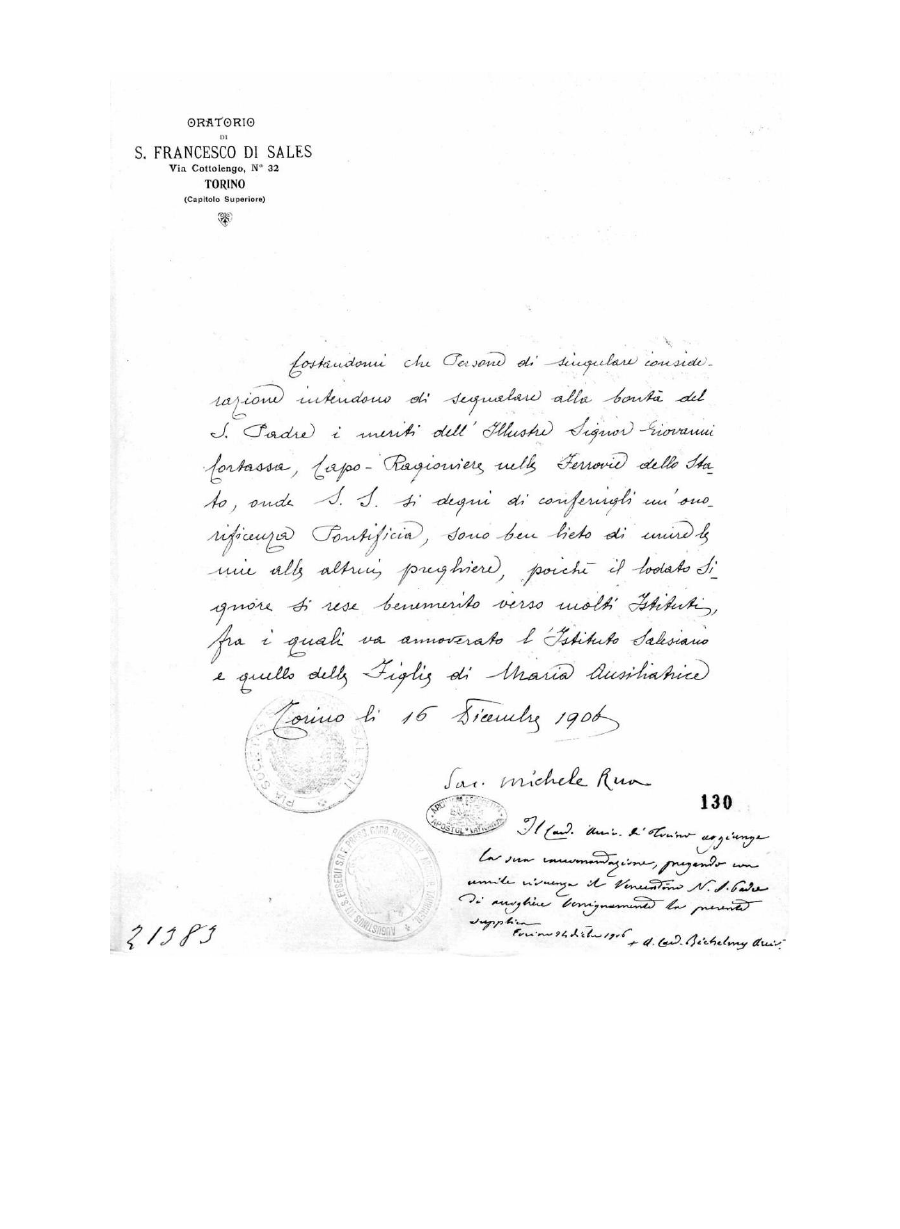 ORATORIO
DI
S. FRANCESCO DI SALES
Via Cottolengo, N° 32
TORINO
(Capitolo Superiore)
Costandomi che Persone di singolare conside-
razione intendono di segnalare alla bontà del
S. Padre i meriti dell' Illustre Signor Giovanni
Cortassa, Capo-Ragioniere nelle Ferrovie dello Sta-
to, onde S. S. si degni di conferirgli un' ono-
rificenza Pontificia, sono ben lieto di unire le
mie alle altrui preghiere, poichè il lodato Si-
gnore si rese benemerito verso molti Istituti,
fra i quali va annoverato l' Istituto Salesiano
e quello delle Figlie di Maria Ausiliatrice
Torino li 16 Dicembre 1906
Sac. Michele Rua
130
Il Card. Arciv. di Torino aggiunge
la sua raccomandazione, pregando con
umile istanza il Veneratino N. S. Padre
di accogliere benignamente la presente
supplica
Torino 1906
+ A. Card. Richelmy Arciv.
21383